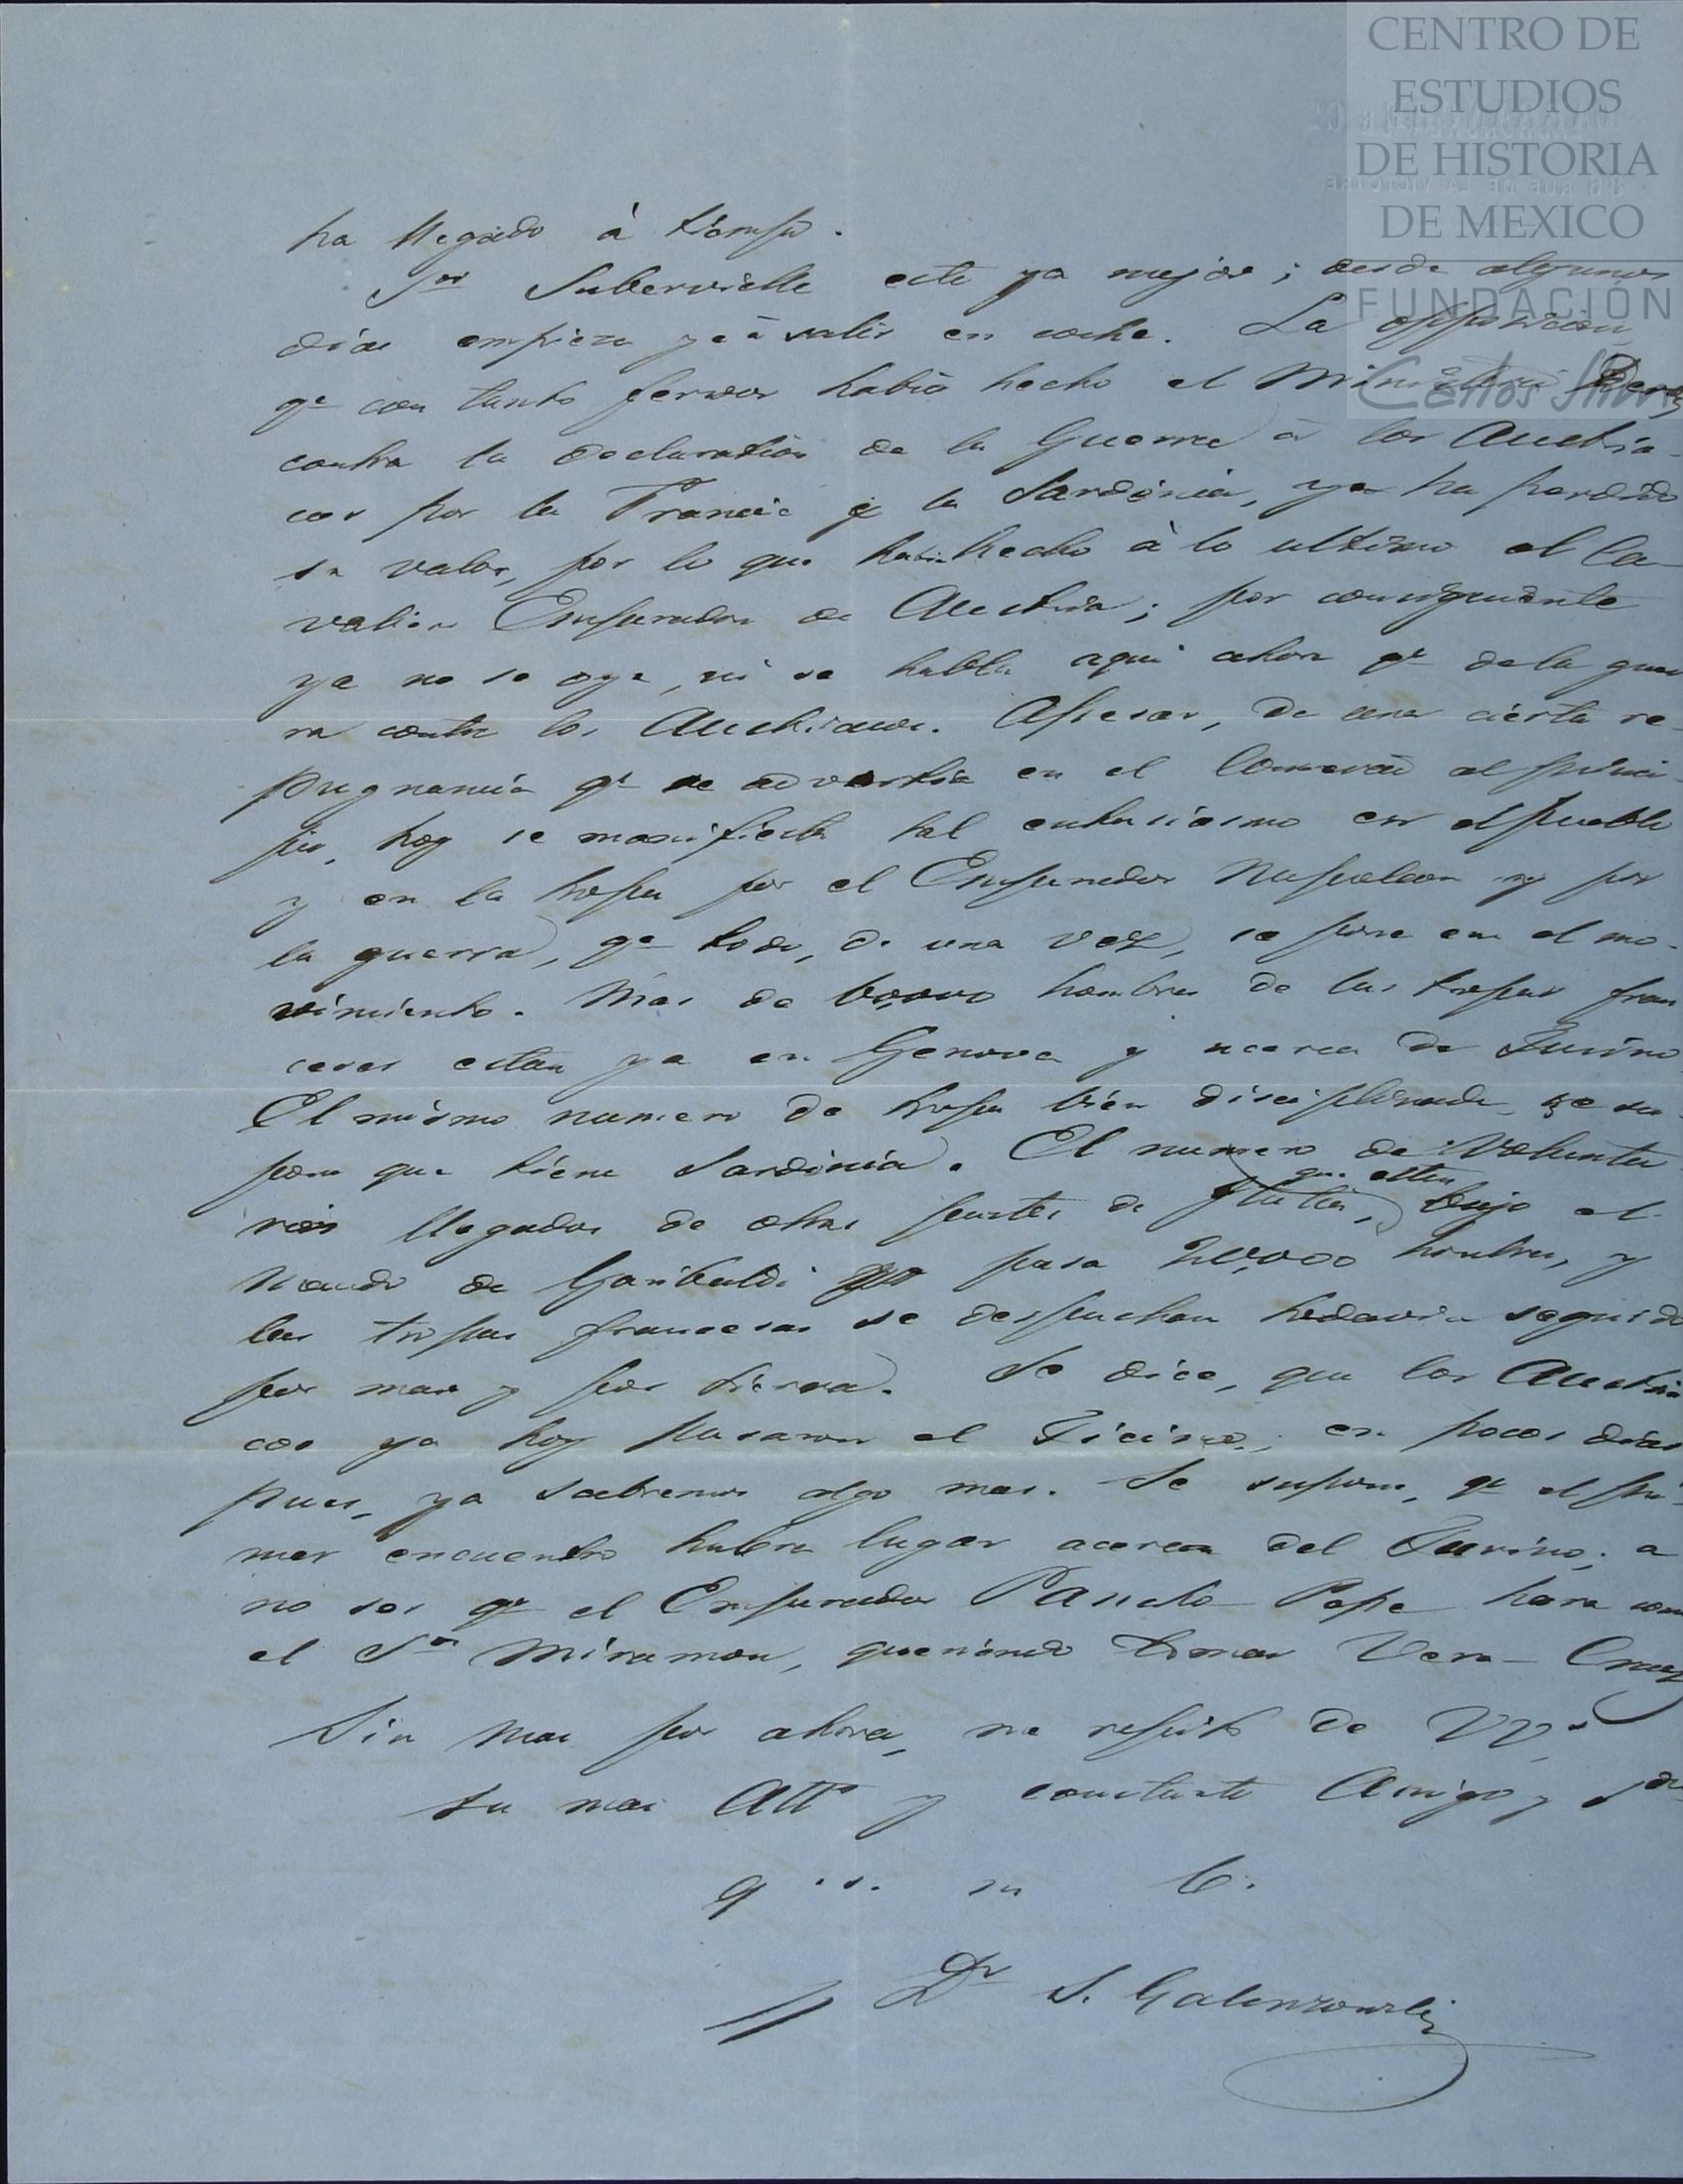 CENTRO DE
ESTUDIOS
DE HISTORIA
DE MEXICO
FUNDACIÓN
Carlos Slim
ha llegado à tiempo.
Sor Subervielle está ya mejor; desde algunos
dias empieza ya à salir en coche. La opposicion
qe con tanto fervor habia hecho el Ministerio Derby
contra la declaration de la Guerra à los Austria-
cos por la Francia y la Sardinia, ya ha perdido
su valor, por lo que habia hecho à lo ultimo el Ca-
valier Emperador de Austria; por consiguiente
ya no se oye, ni se habla aqui ahora qe de la guer
ra contra los Austriacos. Apesar, de una cierta re-
pugnancia qe se advertia en el Comercio al princi-
pio, hoy se manifiesta tal entusiasmo en el pueblo
y en la tropa por el Emperador Napoleon y por
la guerra, qe todo, de una vez, se puso en el mo-
vimiento. Mas de hombres de las tropas fran
cesas estan ya en Genova y acerca de Turino
El mismo numero de tropa bien disciplinada se su-
pone que tiene Sardinia. El numero de Volunta
rios llegados de otras partes de Italia, que estan bajo el
mando de Garibaldi pasa 20,000 hombres, y
las tropas francesas se despachan todavia seguido
por mar y por tierra. Se dice, que los Austria
cos ya hoy pasaron el Ticino; en pocos dias
pues, ya sabremos algo mas. Se supone, qe el pri-
mer encuentro hubra lugar acerca del Turino; a
no ser qe el Emperador Pancho Pepe hara como
el Sor Miramon, queriendo tomar Vera-Cruz
Sin mas por ahora, me repito de VV.s
su mas Atto y constante Amigo y Sor
q. . s. m B.
Dr S. Galenzowski